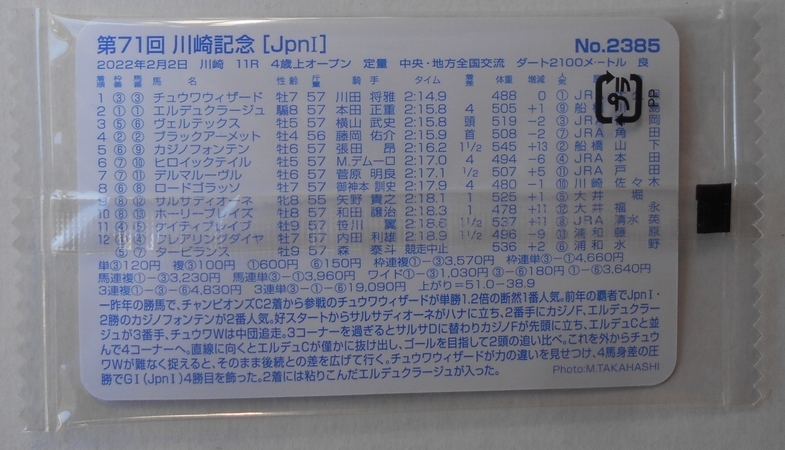 第71回 川崎記念 [JpnI] No.2385
2022年2月2日 川崎 11R 4歳上オープン 定量 中央・地方全国交流 ダート2100メートル 良
着順 枠番 馬番 馬名 性齢 斤量 騎手 タイム 着差 体重 増減 人気
1 ③ ③ チュウワウィザード 牡7 57 川田 将雅 2:14.9 488 0 ① JRA
2 ① ① エルデュクラージュ 騸8 57 本田 正重 2:15.8 4 505 +1 ⑨ 船橋
3 ⑤ ⑥ ヴェルテックス 牡5 57 横山 武史 2:15.8 頭 519 -2 ③ 岡
4 ② ② ブラックアーメット 牡4 56 藤岡 佑介 2:15.9 首 508 -2 ⑦ JRA 角田
5 ⑥ ⑨ カジノフォンテン 牡6 57 張田 昂 2:16.2 1 1/2 545 +13 ② 船橋 山下
6 ⑦ ⑩ ヒロイックテイル 牡5 57 M.デムーロ 2:17.0 4 494 -6 ④ JRA 本田
7 ⑦ ⑪ デルマルーヴル 牡6 57 菅原 明良 2:17.1 1/2 507 +5 ⑪ JRA 戸田
8 ⑥ ⑧ ロードゴラッソ 牡7 57 御神本 訓史 2:17.9 4 480 -1 ⑩ 川崎 佐々木
9 ⑧ ⑫ サルサディオーネ 牝8 55 矢野 貴之 2:18.1 1 525 +1 ⑤ 大井 堀
10 ⑧ ⑬ ホーリーブレイズ 牡8 57 和田 譲治 2:18.3 1 478 +11 大井 福永
11 ④ ⑤ ケイティブレイブ 牡9 57 笹川 翼 2:18.6 1 1/2 537 +11 JRA 清水英
12 フレアリングダイヤ 牡7 57 内田 利雄 2:18.9 1 1/2 496 -9 ⑬ 浦和 藤原
⑤ ⑦ タービランス 牡9 57 森 泰斗 競走中止 536 +2 ⑥ 浦和 水野
単③120円 複③100円 ①600円 ⑥150円 枠連複①-③3,570円 枠連単③-①4,660円
馬連複①-③3,230円 馬連単③-①3,960円 ワイド①-③1,030円 ③-⑥180円 ①-⑥3,640円
3連複①-③-⑥4,830円 3連単③-①-⑥19,090円 上がり=51.0-38.9
一昨年の勝馬で、チャンピオンズC2着から参戦のチュウワウィザードが単勝1.2倍の断然1番人気。前年の覇者でJpnI・
2勝のカジノフォンテンが2番人気。好スタートからサルサディオーネがハナに立ち、2番手にカジノF、エルデュクラー
ジュが3番手、チュウワWは中団追走。3コーナーを過ぎるとサルサDに替わりカジノFが先頭に立ち、エルデュCと並
んで4コーナーへ。直線に向くとエルデュCが僅かに抜け出し、ゴールを目指して2頭の追い比べ。これを外からチュウ
ワWが難なく捉えると、そのまま後続との差を広げて行く。チュウワウィザードが力の違いを見せつけ、4馬身差の圧
勝でGI(JpnI)4勝目を飾った。2着には粘りこんだエルデュクラージュが入った。
Photo:M.TAKAHASHI
プラ
PP